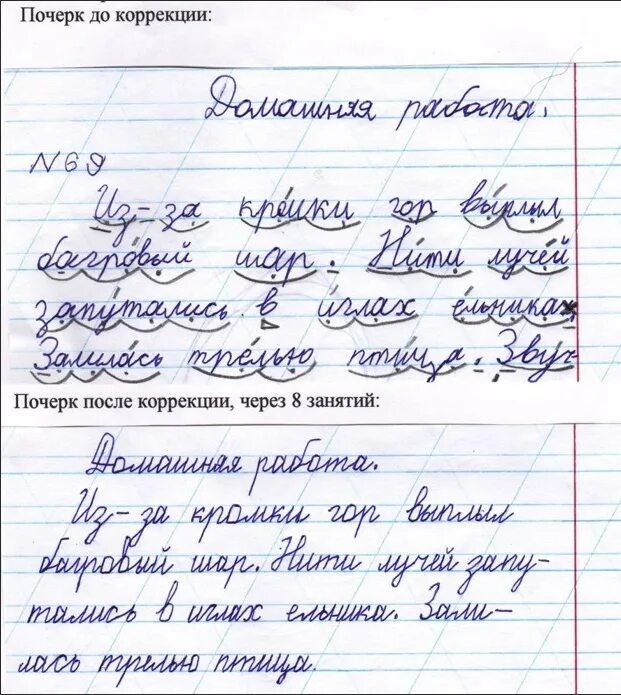 Почерк до коррекции:
Домашняя работа.
№69
Из-за кромки гор выплыл
багровый шар. Нити лучей
запутались в иглах ельника.
Залилась трелью птица. Звуч-
Почерк после коррекции, через 8 занятий:
Домашняя работа.
Из-за кромки гор выплыл
багровый шар. Нити лучей запу-
тались в иглах ельника. Зали-
лась трелью птица.